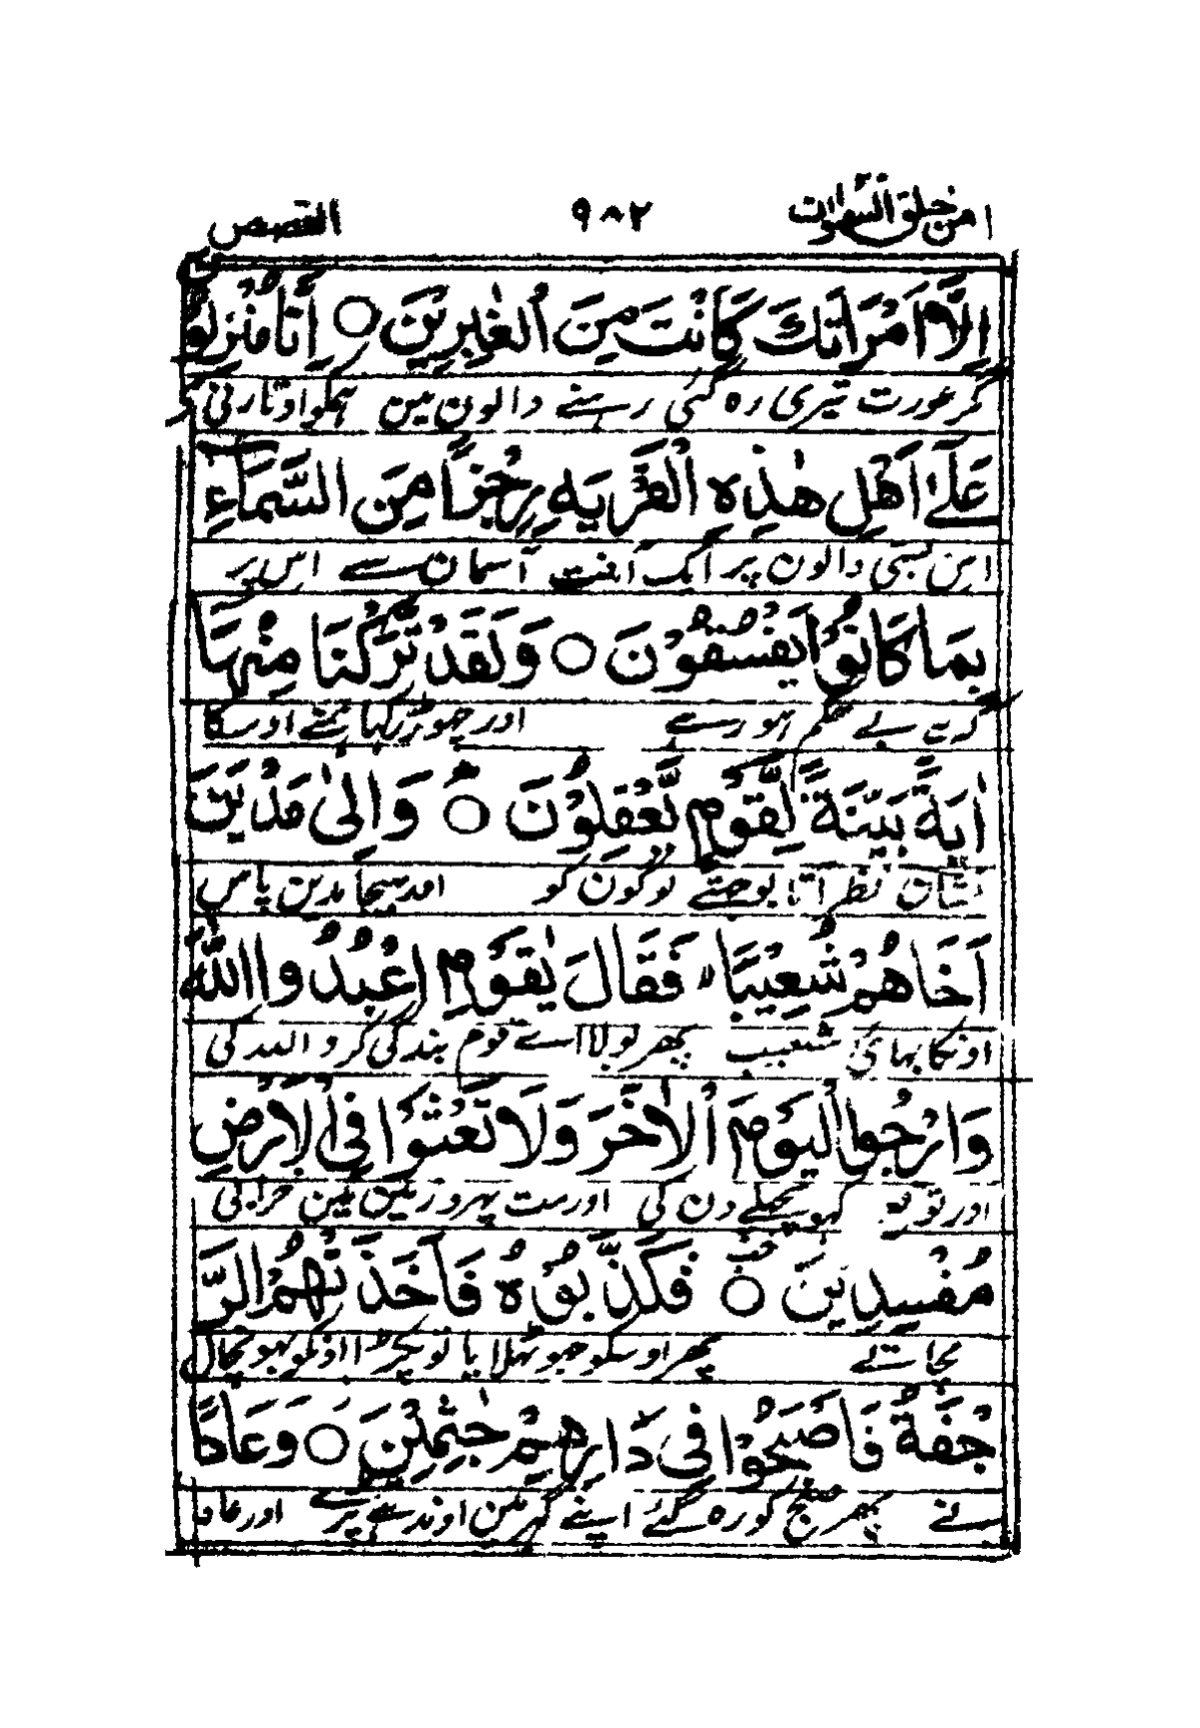 امن خلق السموات ٩٨٢ القصص
اِلَّا امْرَاَتَكَ كَانَتْ مِنَ الْغٰبِرِيْنَ ○ اِنَّا مُنْزِلُوْنَ
مگر عورت تیری رہ گئی رہنے والون مین ہمکو اوتارنی
عَلٰٓى اَهْلِ هٰذِهِ الْقَرْيَةِ رِجْزًا مِّنَ السَّمَآءِ
اس بستی والون پر ایک آفت آسمان سے اس پر
بِمَا كَانُوْا يَفْسُقُوْنَ ○ وَلَقَدْ تَّرَكْنَا مِنْهَا
کہ بے حکم ہو رہے اور چھوڑ رکہا ہمنے اوسکا
اٰيَةً بَيِّنَةً لِّقَوْمٍ يَّعْقِلُوْنَ ○ وَاِلٰى مَدْيَنَ
نشان نظر آتا بوجھتے لوگون کو اور بھیجا مدین پاس
اَخَاهُمْ شُعَيْبًا فَقَالَ يٰقَوْمِ اعْبُدُوا اللّٰهَ
اونکا بہائی شعیب پھر بولا اے قوم بندگی کرو اللہ کی
وَارْجُوا الْيَوْمَ الْاٰخِرَ وَلَا تَعْثَوْا فِى الْاَرْضِ
اور توقع پچھلے دن کی اور مت پہرو زمین مین خرابی
مُفْسِدِيْنَ ○ فَكَذَّبُوْهُ فَاَخَذَتْهُمُ الرَّ
مچاتے پھر اوسکو جھوٹھلایا تو پکڑا اونکو بہونچال
جْفَةُ فَاَصْبَحُوْا فِىْ دَارِهِمْ جٰثِمِيْنَ ○ وَعَادًا
نے پھر صبح کو رہ گئے اپنے گھر مین اوندھے پڑے اور عاد